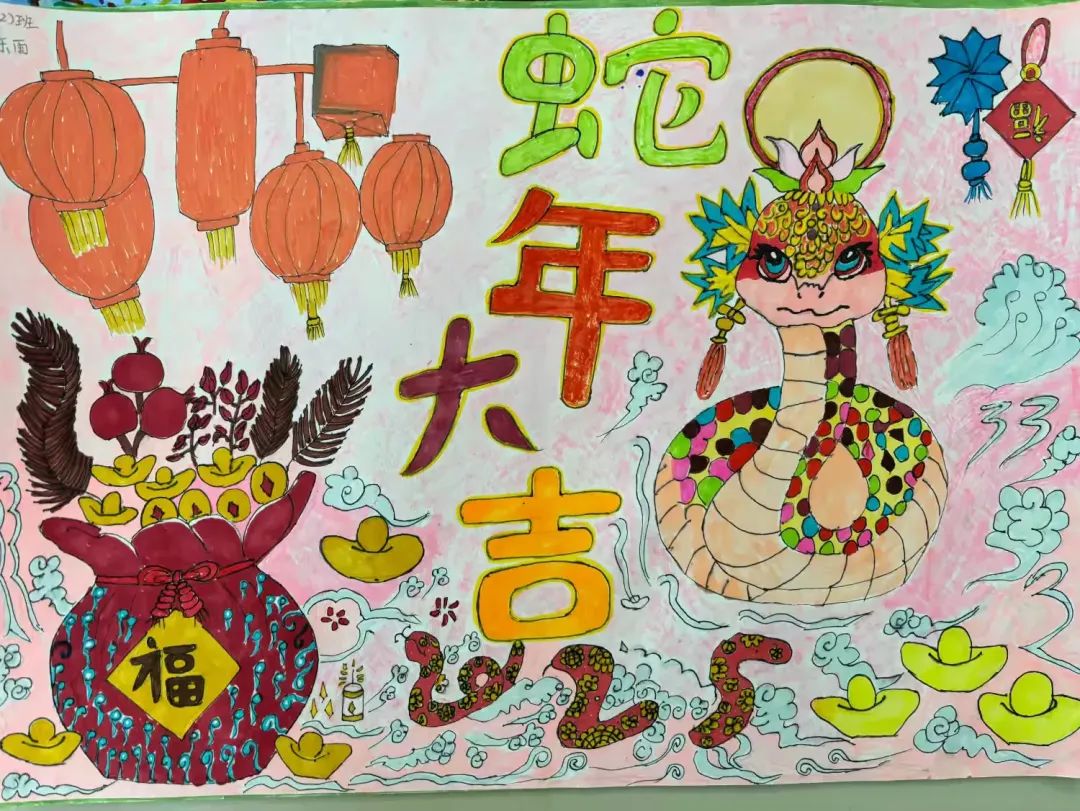 2)班
雨
蛇年大吉
福
福
2025